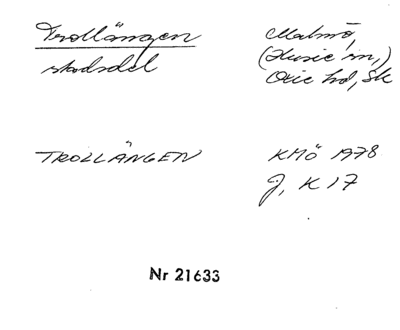 Trollängen
stadsdel
Malmö,
(Husie sn,)
Oxie hd, Sk
TROLLÄNGEN
KMÖ 1978
J, K 17
Nr 21633